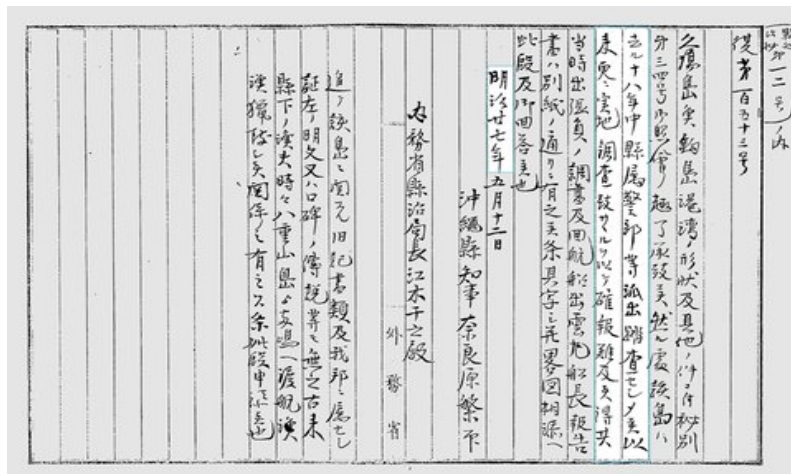 復第百五十三号
久場島魚釣島港湾ノ形状及其他ノ件ニ付秘別
第三四号御照会ノ趣了承致候然ル處該島ハ
去ル十八年中縣属警部等派出踏査セシメ候以
来更ニ実地調査致サヽルヲ以テ確報難及候得共
当時出張員ノ調書及回航船出雲丸船長報告
書ハ別紙ノ通リニ有之候条其写ニ并畧図相添へ
此段及御回答候也
明治廿七年五月十二日
沖繩縣知事奈良原繁
内務省縣治局長江木千之殿
追テ該島ニ関スル旧記書類及我邦ニ属セシ
証左ノ明文又ハ口碑ノ傳説等モ無之古来
縣下ノ漁夫時々八重山島ヨリ両島ヘ渡航漁
漁猟致シ候関係ノミ有之候条此段申添候也
外務省